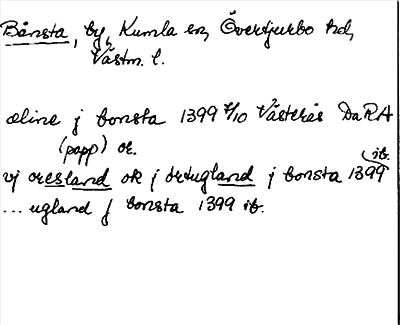 Bånsta, by, Kumla sn, Övertjurbo hd,
Västm. l.
oline j bonsta 1399 7/10 Västerås DaRA
(papp) or.
vj oresland ok j örtugland j bonsta 1399 ib.
... ugland j bonsta 1399 ib.